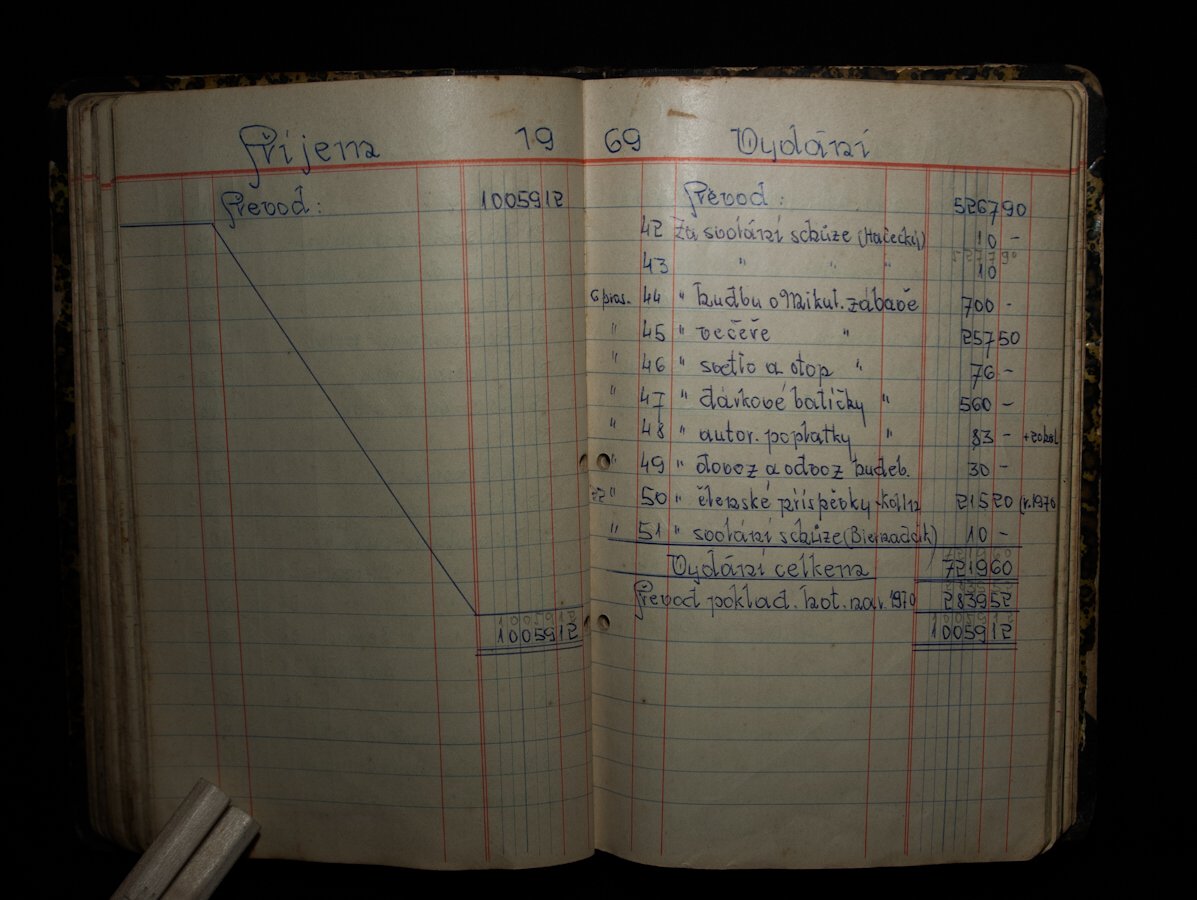 Příjem 19
Převod: 1005912
1005912
1005912
69 Vydání
Převod: 526790
42 Za svolání schůze (Hačecký) 10 -
527790
43 " " " 10
6 pros. 44 " hudbu o Mikul. zábavě 700 -
" 45 " večeře " 25750
" 46 " světlo a otop " 76 -
" 47 " dárkové balíčky " 560 -
" 48 " autor. poplatky " 83 -
" 49 " dovoz a odvoz hudeb. 30 -
22 " 50 " členské příspěvky - Kolín 21520 (r. 1970
" 51 " svolání schůze (Biernadčík) 10 -
721960
Vydání celkem 721960
283952
Převod poklad. hot. na r. 1970 283952
1005912
1005912